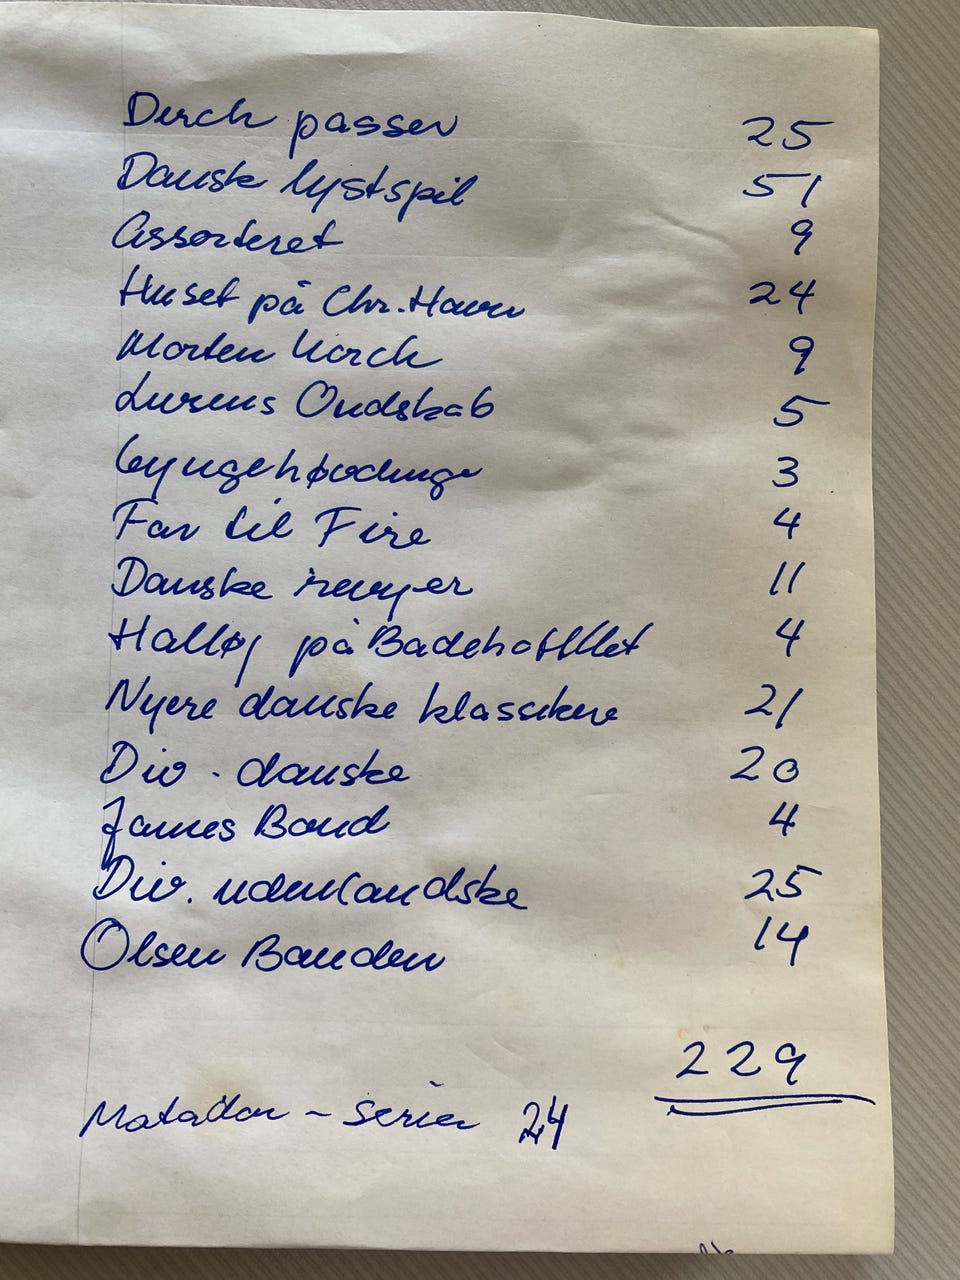 Dirch passer 25
Dansk lystspil 51
Assorteret 9
Huset på Chr. Havn 24
Morten Korch 9
Lurens Ondskab 5
Gyngehøvdinge 3
Far til Fire 4
Danske revyer 11
Halløj på Badehotllet 4
Nyere danske klassikere 21
Div. danske 20
James Bond 4
Div. udenlandske 25
Olsen Banden 14
229
Matador - serien 24